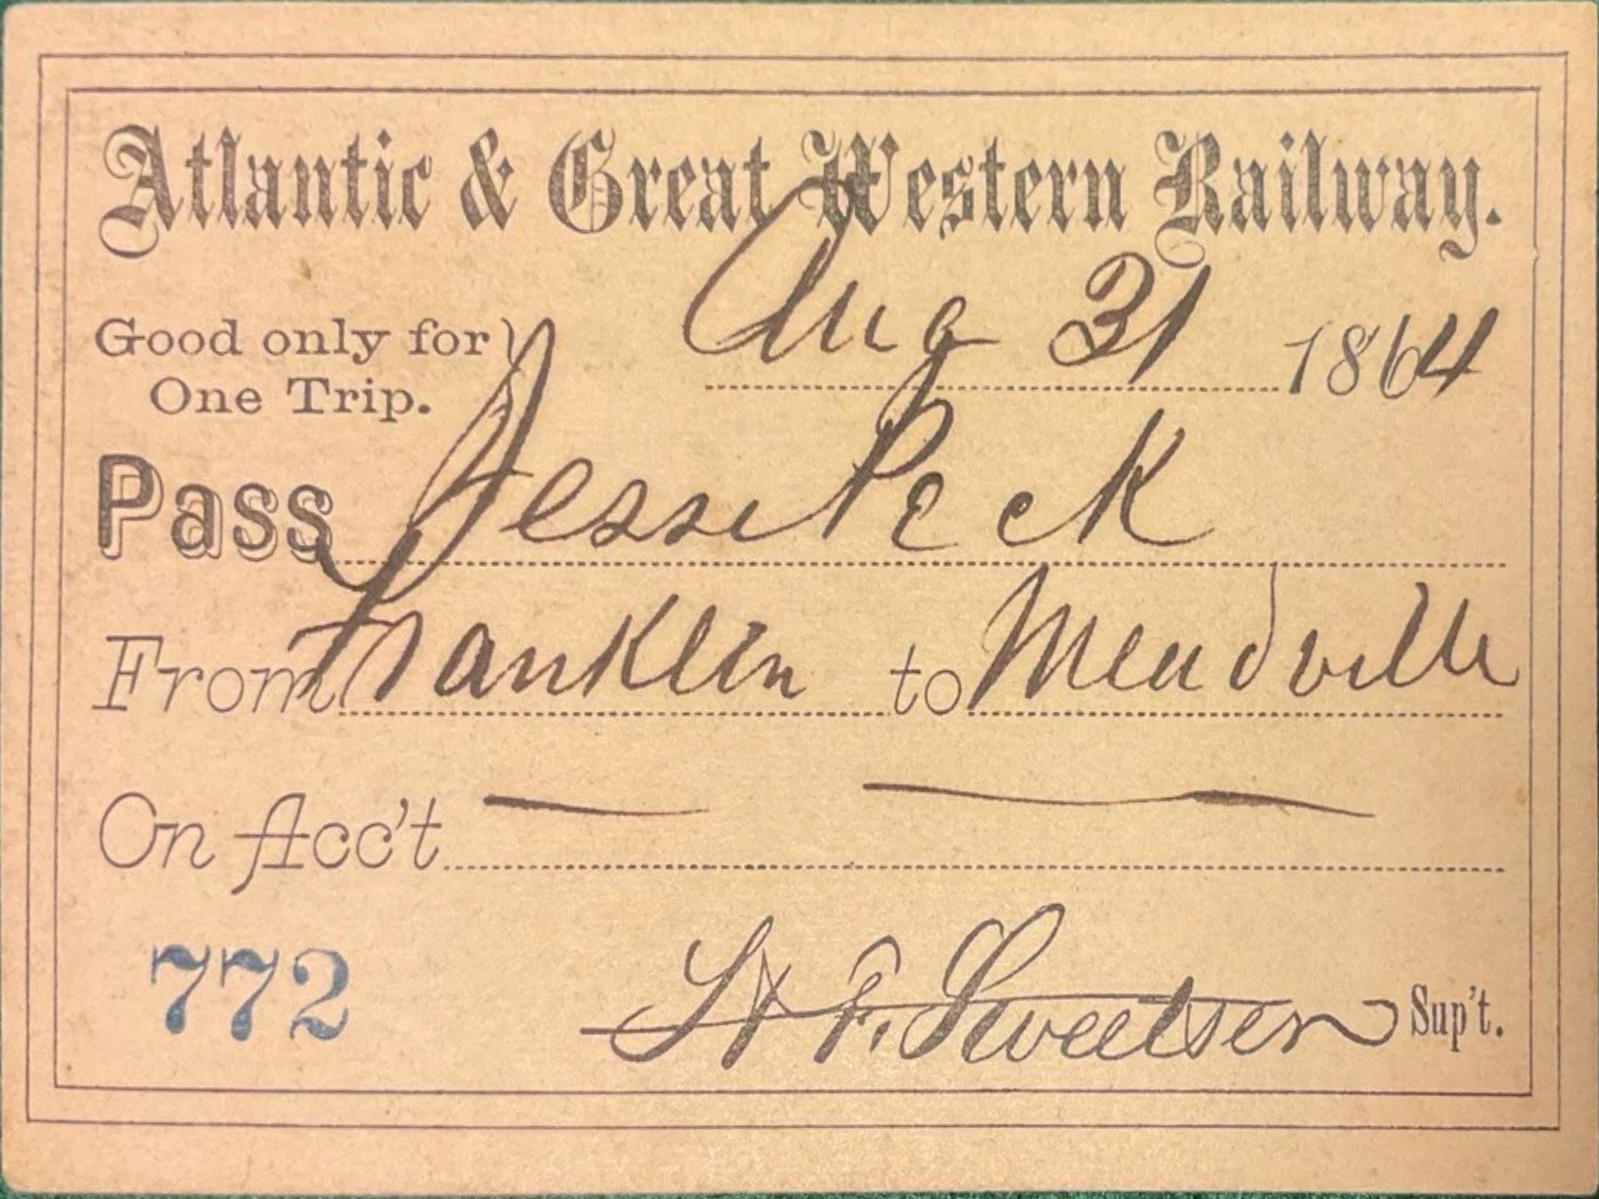 Atlantic & Great Western Railway.
Aug 31 1864
Good only for
One Trip.
Pass Jesse Peck
From Franklin to Meadville
On Acc't
772 H. F. Sweetser Sup't.